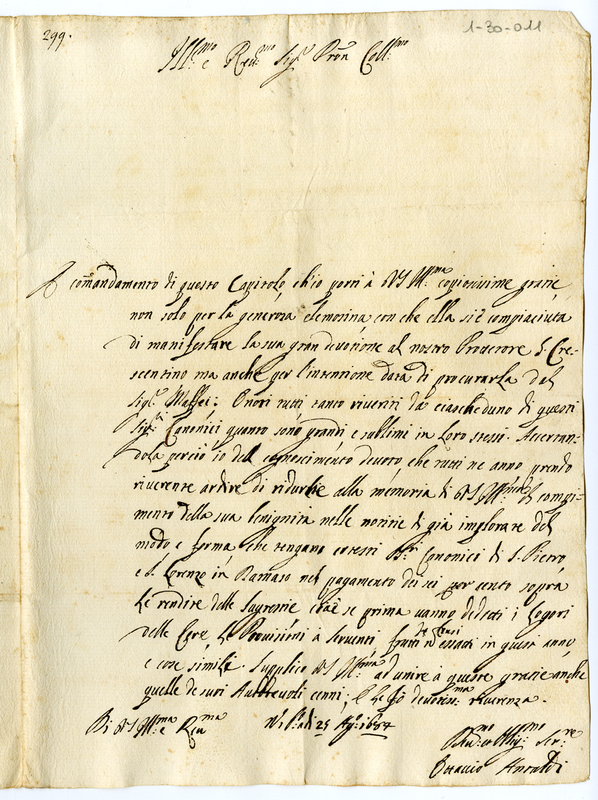 299.
1-30-011
Ill.mo e Rev.mo Sig.r Pron Coll.mo
È comandamento di questo Capitolo ch'io porti à VS Ill.ma copiosissime grazie
non solo per la generosa elemosina con che ella si è compiaciuta
di manifestare la sua gran devotione al nostro Protetore S. Cre-
scentino ma anche per l'intentione data di procurarla dal
Sig.r Maffei: Onori tutti tanto riveriti da ciascheduno di questi
Sig.ri Canonici quanto sono grandi e sublimi in loro stessi. Accertan-
dola perciò io del conoscimento devoto che tutti ne anno prendo
riverente ardire di ridurle alla memoria di VS Ill.ma il compi-
mento della sua benignità nelle notitie di già implorate del
modo e forma che tengano cotesti Canonici di S. Pietro
e S. Lorenzo in Damaso nel pagamento dei sei per cento sopra
le rendite delle Sagrestie cioè se prima vanno dedotti i logori
delle Cere, le Provisioni à serventi, frutti di Censi essati in quest anno
e cose simili. Supplico VS Ill.ma ad unire à queste grazie anche
quelle de suoi Auttorevoli cenni, e le fò devotiss.ma riverenza.
Di VS Ill.ma e Rev.ma
li 25 1687
Ser.re
Ottavio